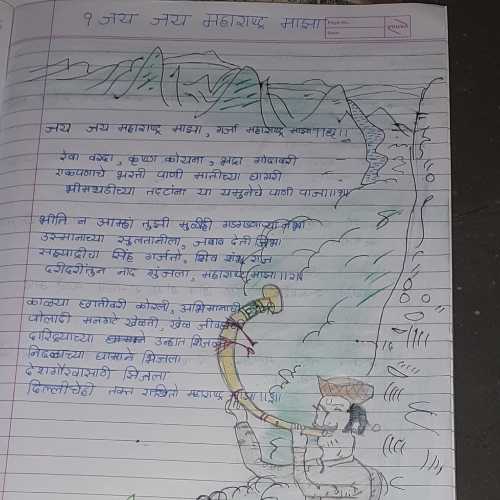 १ जय जय महाराष्ट्र माझा
जय जय महाराष्ट्र माझा, गर्जा महाराष्ट्र माझा ||धृ||
रेवा वरदा, कृष्णा कोयना, भद्रा गोदावरी
एकपणाचे भरती पाणी मातीच्या घागरी
भीमथडीच्या तट्टांना या यमुनेचे पाणी पाजा ||१||
भीति न आम्हां तुझी मुळीही गडगडणाऱ्या नभा
अस्मानाच्या सुलतानीला, जवाब देती जिभा
सह्याद्रीचा सिंह गर्जतो, शिव शंभू राजा
दरीदरीतुन नाद गुंजला, महाराष्ट्र माझा ||२||
काळ्या छातीवरी कोरली, अभिमानाची
पोलादी मनगटे खेळती, खेळ
दारिद्र्याच्या उन्हात शिजला
निढळाच्या घामाने भिजला
देशगौरवासाठी झिजला
दिल्लीचेही तक्त राखितो महाराष्ट्र माझा ||३||